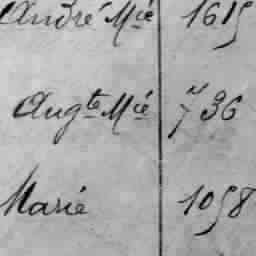 André Mie 1615
Augte Mie " 736
Marie 1058